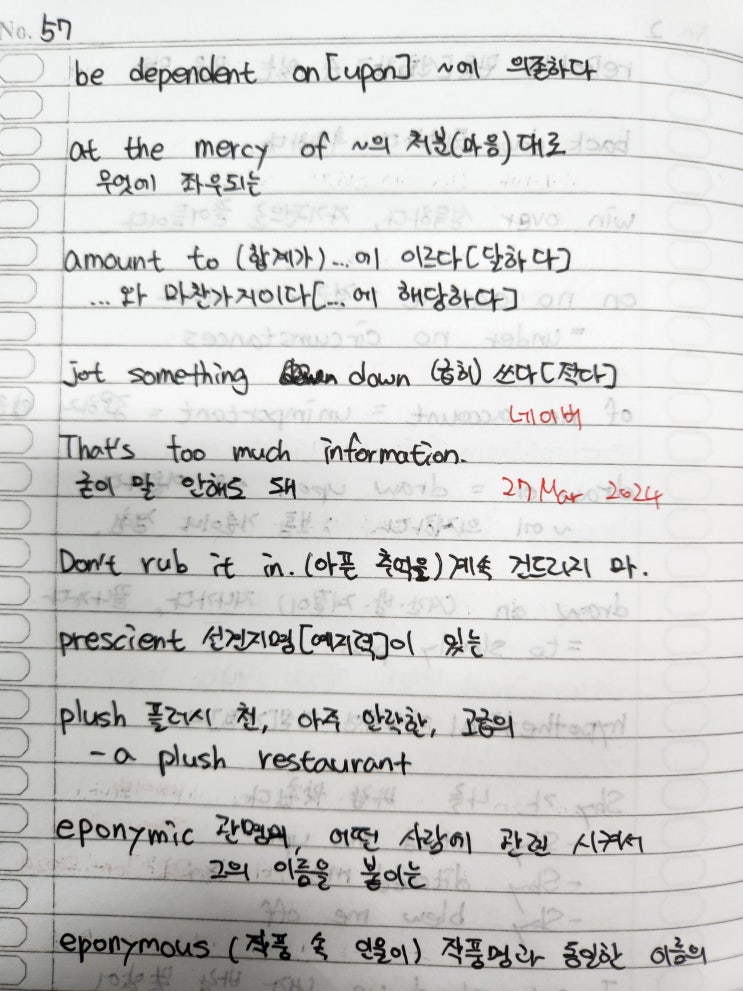 No. 57
be dependent on[upon] ~에 의존하다
at the mercy of ~의 처분(마음)대로
무엇에 좌우되는
amount to (합계가)...에 이르다[달하다]
...와 마찬가지이다[...에 해당하다]
jot something down (급히) 쓰다[적다]
네이버
That's too much information.
굳이 말 안해도 돼
27 Mar 2024
Don't rub it in. (아픈 추억을) 계속 건드리지 마.
prescient 선견지명[예지력]이 있는
plush 플러시 천, 아주 안락한, 고급의
- a plush restaurant
eponymic 관명의, 어떤 사람에 관련 시켜서
그의 이름을 붙이는
eponymous (작품 속 인물이) 작품명과 동일한 이름의